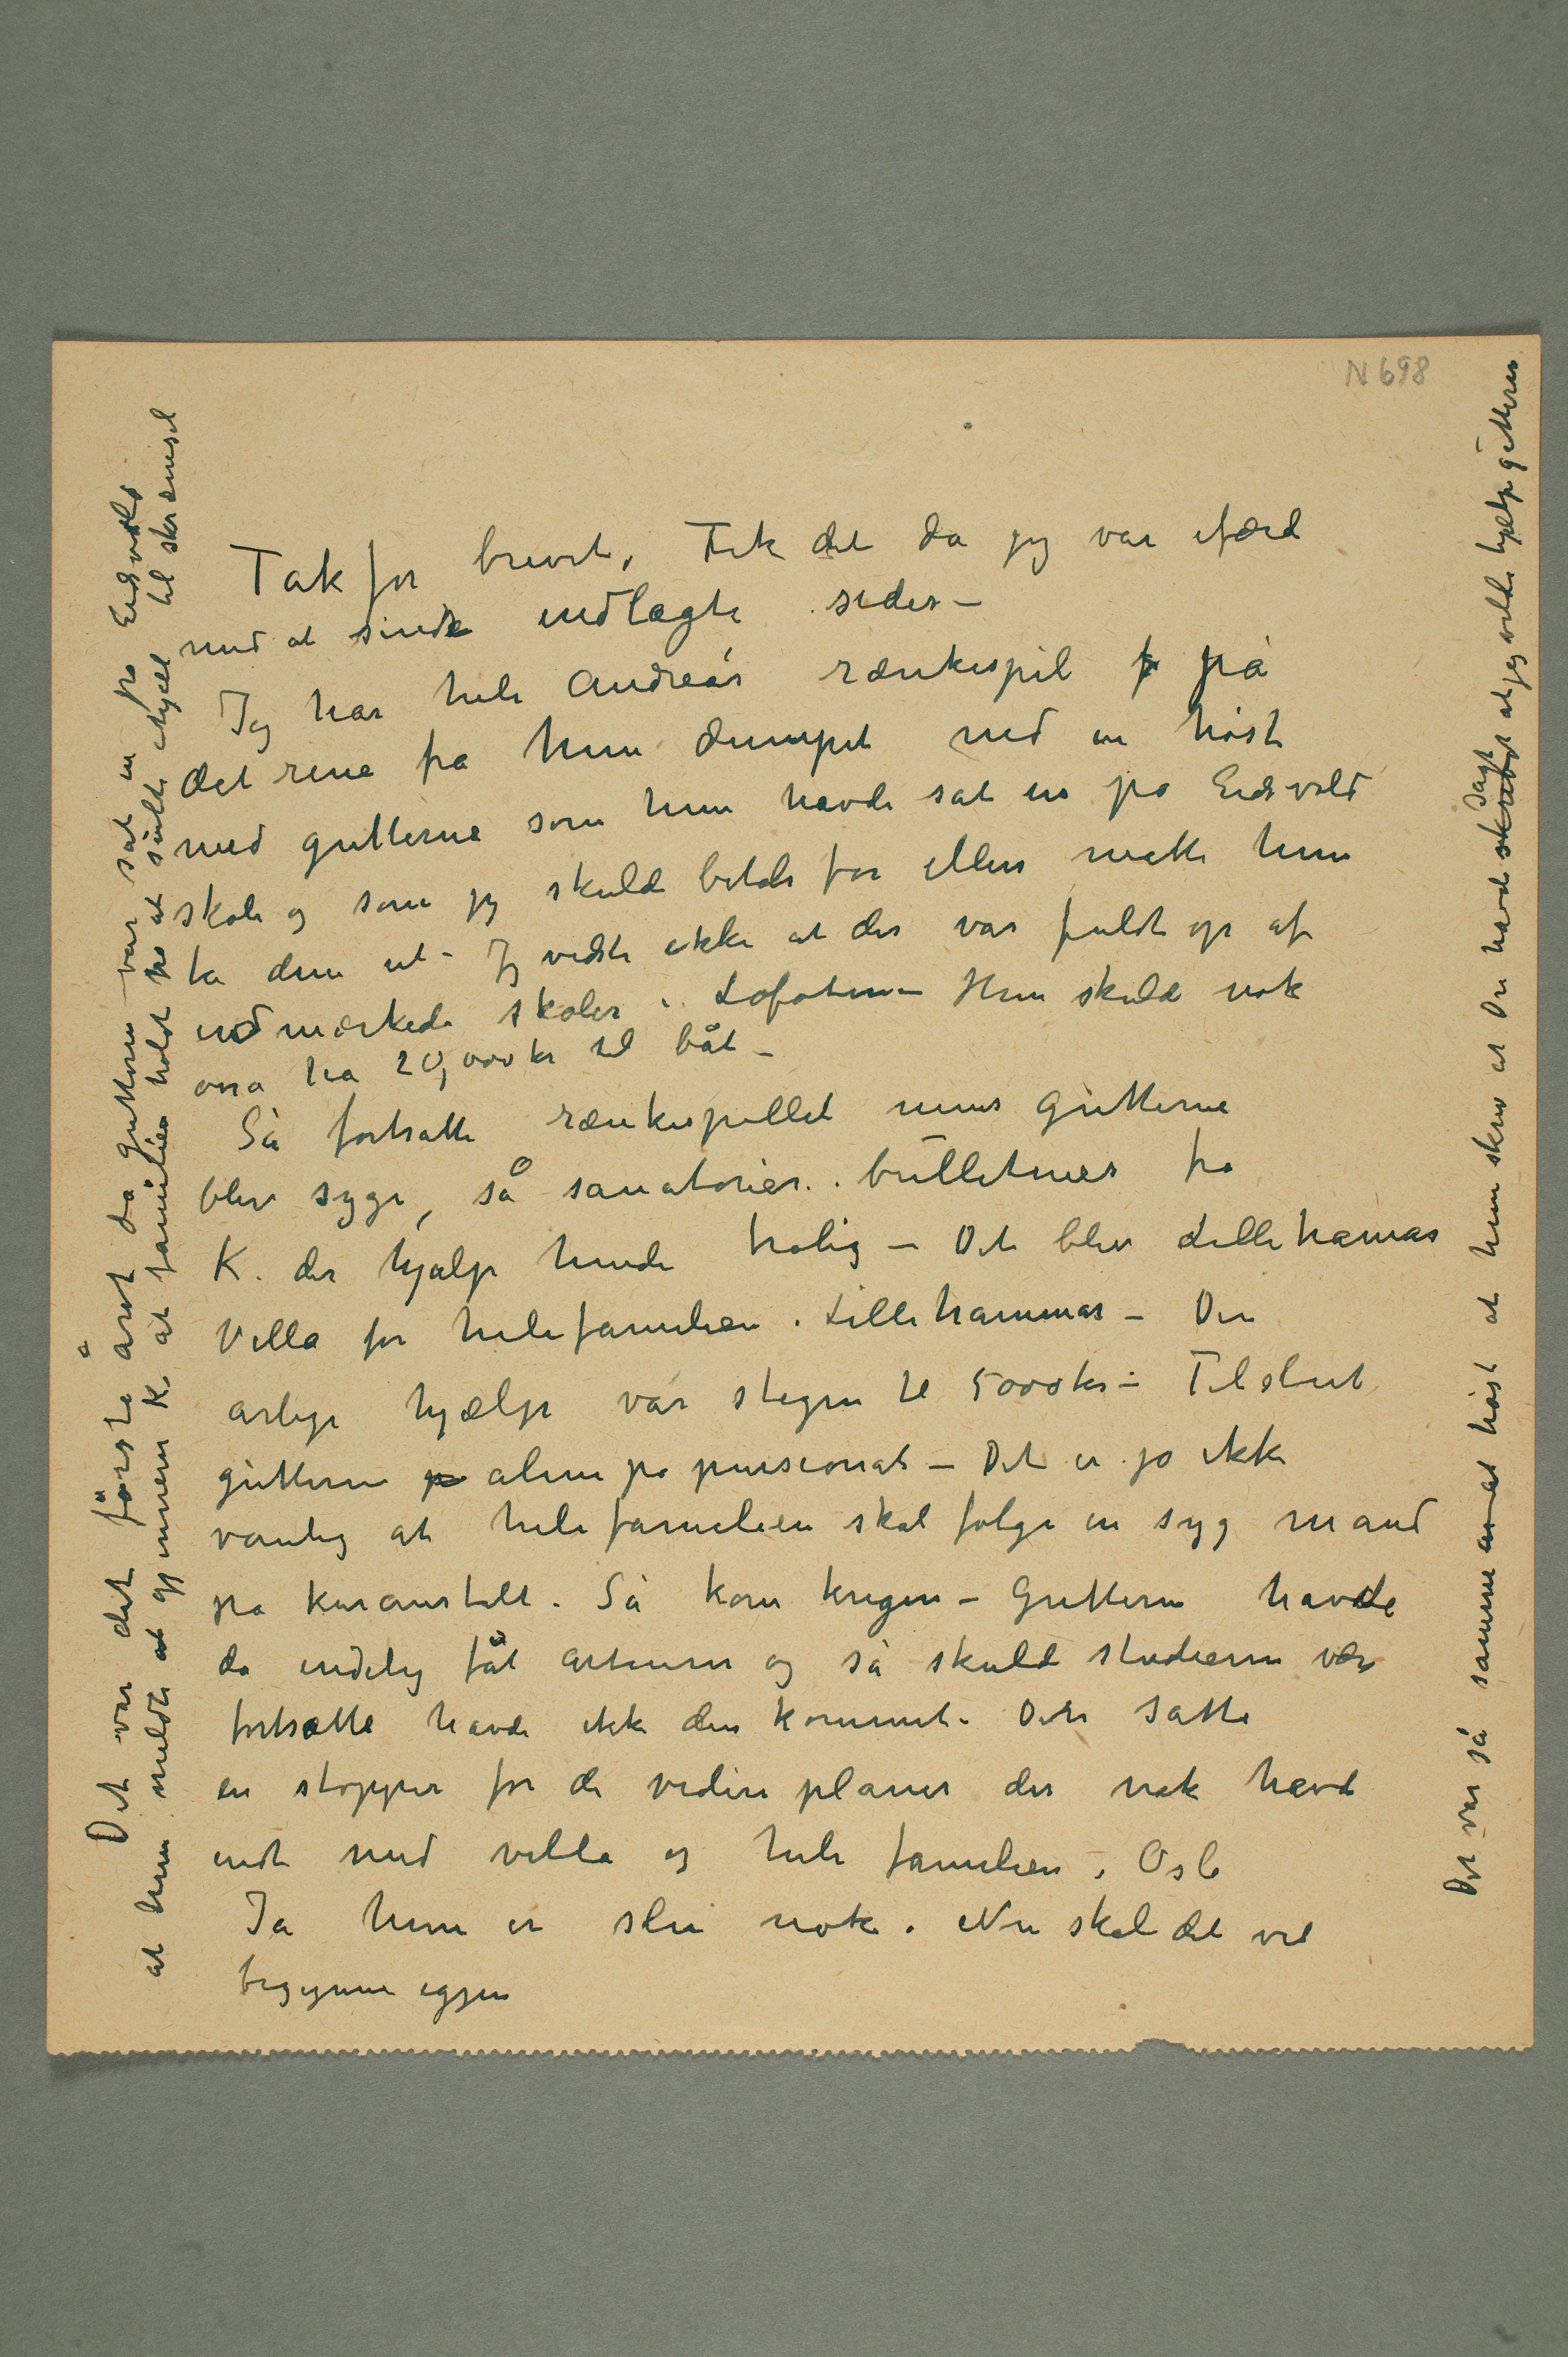 N 698
Tak for brevet. Fik det da jeg var ifærd
med at sende indlagte sider –
Jeg har hele Andreas rænkespil på
det rene fra hun dumpet ned en høst
med gutterne som hun havde sat in på Eidsvold
skole og som jeg skulde betale for ellers måtte hun
ta dem ut – Jeg vidste ikke at der var fuldt op af
udmærkede skoler i Lofoten – Hun skulde nok
osså ha 20,000 kr til båt –
Så fortsatte rænkespillet mens gutterne
blev syge, så sanatorier. bulletiner fra
K. der hjalp hende trolig – Det blev Lillehamar
Villa for hele familien i Lillehammar – Den
årlige hjælp var stegen til 5000 kr – Tilslut
gutterne alene på pensionat – Det er jo ikke
vanlig at hele familien skal følge en syg mand
på kuranstalt. Så kom krigen – Gutterne havde
da endelig fåt artium og så skulde studierne være
fortsatte havde ikke den kommet. Det satte
en stopper for de videre planer der nok havde
endt med villa og hele familien i Oslo
Ja hun er slu nok. Nu skal det vel
begynne igjen
Det var det første året da gutterne var sat in på Eidsvold
at hun meldte gjennem K. at familien holdt på at sulte ihjæl til skræmsel
Det var så samme høst at hun skrev at Du havde skrevet sagt at jeg vilde hjælpe gutterne